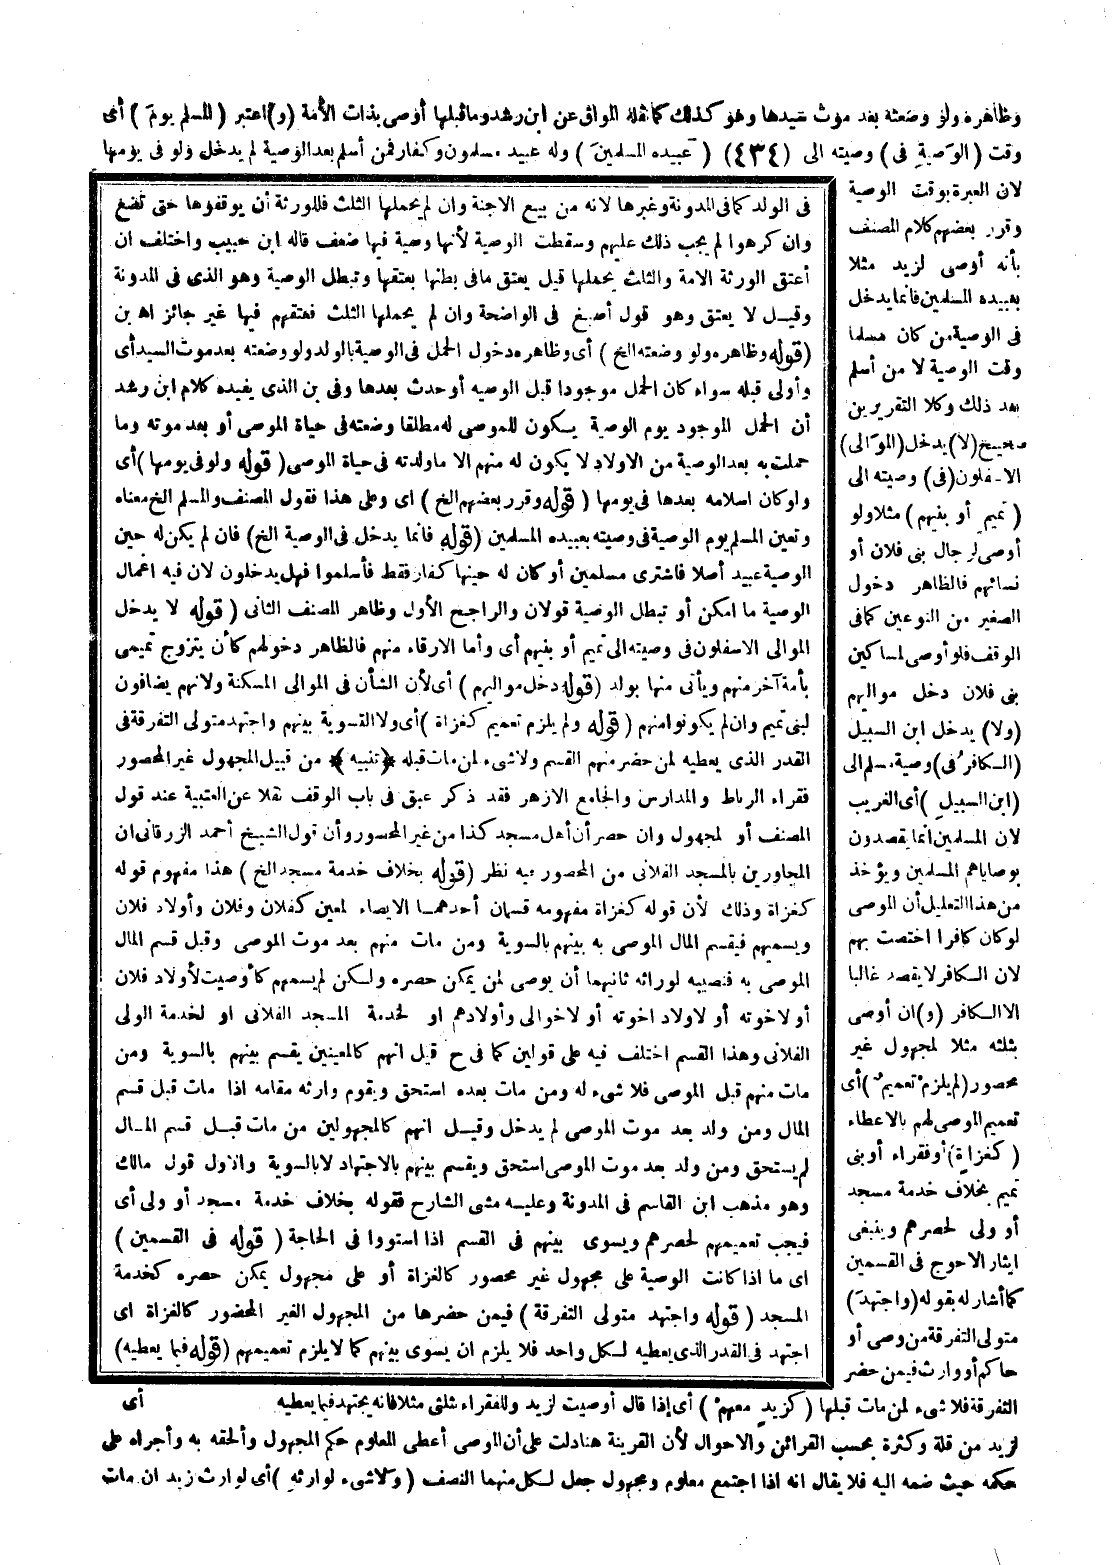 وظاهره ولو وضعته بعد موت سيدها وهو كذلك كما نقله المواق عن ابن رشد وما قبلها أوصى بذات الأمة (و) اعتبر (المسلم يوم) أى
وقت (الوصية فى) وصيته الى (٤٣٤) (عبيده المسلمين) وله عبيد مسلمون وكفار فمن أسلم بعد الوصية لم يدخل ولو فى يومها
لان العبرة بوقت الوصية
وقرر بعضهم كلام المصنف
بأنه أوصى لزيد مثلا
بعبيده المسلمين فانما يدخل
فى الوصية من كان مسلما
وقت الوصية لا من أسلم
بعد ذلك وكلا التقريرين
صحيح (لا) يدخل (الموالى)
الاسفلون (فى) وصيته الى
(تميم أو بنيهم) مثلا ولو
أوصى لرجال بنى فلان أو
نسائهم فالظاهر دخول
الصغير من النوعين كما فى
الوقف فلو أوصى لمساكين
بنى فلان دخل مواليهم
(ولا) يدخل ابن السبيل
(الكافر فى) وصية مسلم الى
(ابن السبيل) أى الغريب
لان المسلمين انما يقصدون
بوصاياهم المسلمين ويؤخذ
من هذا التعليل أن الموصى
لو كان كافرا اختصت بهم
لان الكافر لا يقصد غالبا
الا الكافر (و) ان أوصى
بثلثه مثلا لمجهول غير
محصور (لم يلزم تعميم) أى
تعميم الموصى لهم بالاعطاء
(كغزاة) أو فقراء أو بنى
تميم بخلاف خدمة مسجد
أو ولى لحصرهم وينبغى
ايثار الاحوج فى القسمين
كما أشار له بقوله (واجتهد)
متولى التفرقة من وصى أو
حاكم أو وارث فيمن حضر
فى الولد كما فى المدونة وغيرها لانه من بيع الاجنة وان لم يحملها الثلث فللورثة أن يوقفوها حتى تضع
وان كرهوا لم يجب ذلك عليهم وسقطت الوصية لأنها وصية فيها ضعف قاله ابن حبيب واختلف ان
أعتق الورثة الامة والثلث يحملها قيل يعتق ما فى بطنها بعتقها وتبطل الوصية وهو الذى فى المدونة
وقيل لا يعتق وهو قول أصبغ فى الواضحة وان لم يحملها الثلث فعتقهم فيها غير جائز اه بن
(قوله وظاهره ولو وضعته الخ) أى وظاهره دخول الحمل فى الوصية بالولد ولو وضعته بعد موت السيد أى
وأولى قبله سواء كان الحمل موجودا قبل الوصيه أو حدث بعدها وفى بن الذى يفيده كلام ابن رشد
أن الحمل الموجود يوم الوصية يكون للموصى له مطلقا وضعته فى حياة الموصى أو بعد موته وما
حملت به بعد الوصية من الاولاد لا يكون له منهم الا ما ولدته فى حياة الموصى (قوله ولو فى يومها) أى
ولو كان اسلامه بعدها فى يومها (قوله وقرر بعضهم الخ) اى وعلى هذا فقول المصنف والمسلم الخ معناه
وتعين المسلم يوم الوصية فى وصيته بعبيده المسلمين (قوله فانما يدخل فى الوصية الخ) فان لم يكن له حين
الوصية عبيد أصلا فاشترى مسلمين أو كان له حينها كفار فقط فأسلموا فهل يدخلون لان فيه اعمال
الوصية ما امكن أو تبطل الوصية قولان والراجح الأول وظاهر المصنف الثانى (قوله لا يدخل
الموالى الاسفلون فى وصيته الى تميم أو بنيهم أى وأما الارقاء منهم فالظاهر دخولهم كأن يتزوج تميمى
بأمة آخر منهم ويأتى منها بولد (قوله دخل مواليهم) أى لأن الشأن فى الموالى المسكنة ولانهم يضافون
لبنى تميم وان لم يكونوا منهم (قوله ولم يلزم تعميم كغزاة) أى ولا التسوية بينهم واجتهد متولى التفرقة فى
القدر الذى يعطيه لمن حضر منهم القسم ولا شىء لمن مات قبله ﴿تنبيه﴾ من قبيل المجهول غير المحصور
فقراء الرباط والمدارس والجامع الازهر فقد ذكر عبق فى باب الوقف نقلا عن العتبية عند قول
المصنف أو لمجهول وان حصر أن أهل مسجد كذا من غير المحسور وأن قول الشيخ أحمد الزرقانى ان
المجاورين بالمسجد الفلانى من المحصور فيه نظر (قوله بخلاف خدمة مسجد الخ) هذا مفهوم قوله
كغزاة وذلك لأن قوله كغزاة مفهومه قسمان أحدهما الايصاء لمعين كفلان وفلان وأولاد فلان
ويسميهم فيقسم المال الموصى به بينهم بالسوية ومن مات منهم بعد موت الموصى وقبل قسم المال
الموصى به فنصيبه لوراثه ثانيهما أن يوصى لمن يمكن حصره ولكن لم يسمهم كأوصيت لأولاد فلان
أو لاخوته أو لاولاد اخوته أو لاخوالى وأولادهم او لخدمة المسجد الفلانى او لخدمة الولى
الفلانى وهذا القسم اختلف فيه على قولين كما فى ح قيل انهم كالمعينين يقسم بينهم بالسوية ومن
مات منهم قبل الموصى فلا شىء له ومن مات بعده استحق ويقوم وارثه مقامه اذا مات قبل قسم
المال ومن ولد بعد موت الموصى لم يدخل وقيل انهم كالمجهولين من مات قبل قسم المال
لم يستحق ومن ولد بعد موت الموصى استحق ويقسم بينهم بالاجتهاد لا بالسوية والاول قول مالك
وهو مذهب ابن القاسم فى المدونة وعليه مشى الشارح فقوله بخلاف خدمة مسجد أو ولى أى
فيجب تعميمهم لحصرهم ويسوى بينهم فى القسم اذا استووا فى الحاجة (قوله فى القسمين)
اى ما اذا كانت الوصية على مجهول غير محصور كالغزاة أو على مجهول يمكن حصره كخدمة
المسجد (قوله واجتهد متولى التفرقة) فيمن حضرها من المجهول الغير المحضور كالغزاة اى
اجتهد فى القدر الذى يعطيه لكل واحد فلا يلزم ان يسوى بينهم كما لا يلزم تعميمهم (قوله فيما يعطيه)
التفرقة فلا شىء لمن مات قبلها (كزيد معهم) أى إذا قال أوصيت لزيد وللفقراء بثلثى مثلا فانه يجتهد فيما يعطيه أى
لزيد من قلة وكثرة بحسب القرائن والاحوال لأن القرينة هنا دلت على أن الموصى أعطى المعلوم حكم المجهول وألحقه به وأجراه على
حكمه حيث ضمه اليه فلا يقال انه اذا اجتمع معلوم ومجهول جعل لكل منهما النصف (ولا شىء لوارثه) أى لوارث زيد ان مات